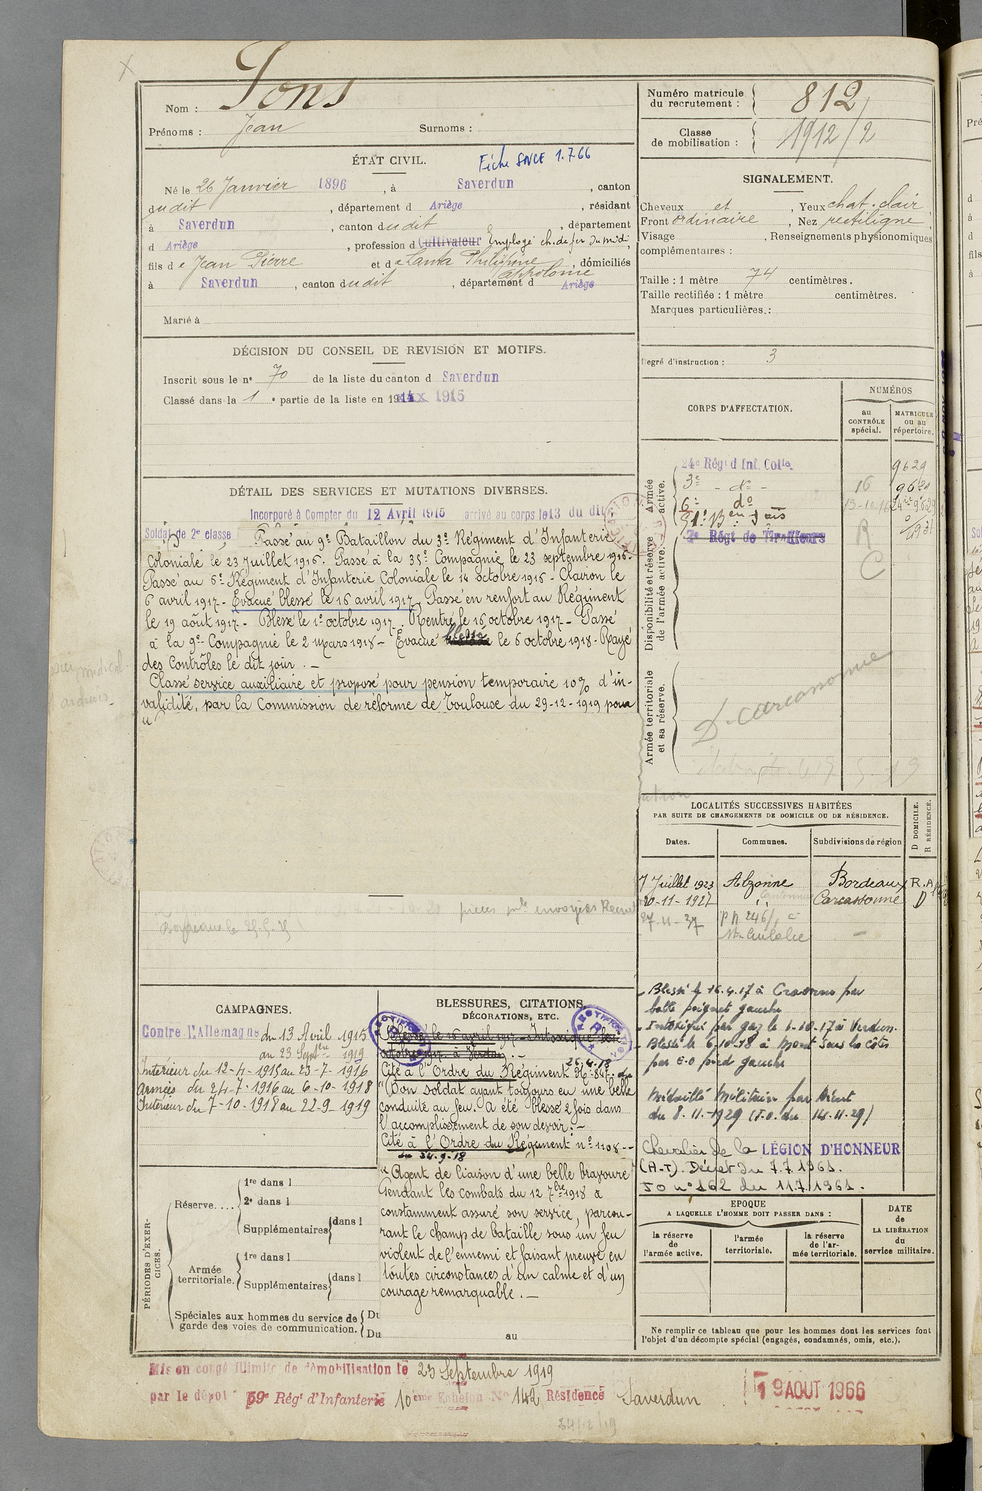 Nom : Pons
Prénoms : Jean Surnoms :
Numéro matricule du recrutement : 812
Classe de mobilisation : 1912/2
ÉTAT CIVIL.
Fiche SNCF 1.7.66
Né le 26 Janvier 1896, à Saverdun, canton
dudit, département d Ariège, résidant
à Saverdun, canton dudit, département
d Ariège, profession d Cultivateur Employé ch. de fer du midi
fils de Jean Pierre et de Philippine, domiciliés
à Saverdun, canton dudit, département d Ariège
Marié à
SIGNALEMENT.
Cheveux et, Yeux chat. clair
Front ordinaire, Nez rectiligne
Visage, Renseignements physionomiques
complémentaires :
Taille : 1 mètre 74 centimètres.
Taille rectifiée : 1 mètre centimètres.
Marques particulières :
Degré d'instruction : 3
DÉCISION DU CONSEIL DE REVISION ET MOTIFS.
Inscrit sous le n° 70 de la liste du canton d Saverdun
Classé dans la 1e partie de la liste en 1915
CORPS D'AFFECTATION.
NUMÉROS
au CONTRÔLE spécial.
MATRICULE ou au répertoire.
Armée active.
24e Régt d'Inf. Colle. 9629
3e - do - 16
6e do
2e Régt de Tirailleurs
R
C
Disponibilité et réserve de l'armée active.
Armée territoriale et sa réserve.
D. Carcassonne
DÉTAIL DES SERVICES ET MUTATIONS DIVERSES.
Incorporé à Compter du 12 Avril 1915 arrivé au corps le 13 du dit
Soldat de 2e classe Passé au 9e Bataillon du 3e Régiment d'Infanterie
Coloniale le 23 Juillet 1916. Passé à la 35e Compagnie le 23 septembre 1916.
Passé au 6e Régiment d'Infanterie Coloniale le 14 octobre 1916 - Clairon le
6 avril 1917 - Evacué blessé le 16 avril 1917. Passé en renfort au Régiment
le 19 août 1917 - Blessé le 1e octobre 1917. Rentré le 16 octobre 1917 - Passé
à la 9e Compagnie le 2 mars 1918 - Evacué blessé le 6 octobre 1918 - Rayé
des Contrôles le dit jour. -
Classé service auxiliaire et proposé pour pension temporaire 10% d'in-
validité, par la Commission de réforme de Toulouse du 29-12-1919 pour
LOCALITÉS SUCCESSIVES HABITÉES
PAR SUITE DE CHANGEMENTS DE DOMICILE OU DE RÉSIDENCE.
Dates. Communes. Subdivisions de région
D DOMICILE. R RÉSIDENCE.
7 Juillet 1923 Alzonne Bordeaux R.A
20-11-1927 Carcassonne D
27-11-37
Blessé le 16.4.17 à Craonne par
balle poignet gauche
Intoxiqué par gaz le 1-10-17 à Verdun.
Blessé le 6-10-18 à Mont Sous les Côtes
par E.O pied gauche
Médaillé Militaire par Décret
du 8-11-1929 (J.O. du 14-11-29)
Chevalier de la LÉGION D'HONNEUR
(A-T). Décret du 7.7.1961.
JO n° 162 du 11.7.1961.
CAMPAGNES.
Contre l'Allemagne du 13 Avril 1915
au 23 Septbre 1919
Intérieur du 12-4-1915 au 23-7-1916
Armées du 24-7-1916 au 6-10-1918
Intérieur du 7-10-1918 au 22-9-1919
BLESSURES, CITATIONS,
DÉCORATIONS, ETC.
RECTIFICATION
RECTIFICATION
Cité à l'Ordre du Régiment
"Bon soldat ayant toujours eu une belle
conduite au feu. A été blessé 2 fois dans
l'accomplissement de son devoir". -
Cité à l'Ordre du Régiment n° 1108 -
du 24-9-18
"Agent de liaison d'une belle bravoure
Pendant les combats du 12 7bre 1918 a
constamment assuré son service, parcou-
rant le champ de bataille sous un feu
violent de l'ennemi et faisant preuve en
toutes circonstances d'un calme et d'un
courage remarquable. -
PÉRIODES D'EXERCICES.
Réserve....
1re dans l
2e dans l
Supplémentaires dans l
Armée territoriale.
1re dans l
Supplémentaires dans l
Spéciales aux hommes du service de garde des voies de communication.
Du
Du au
EPOQUE
A LAQUELLE L'HOMME DOIT PASSER DANS :
la réserve de l'armée active.
l'armée territoriale.
la réserve de l'armée territoriale.
DATE de LA LIBÉRATION du service militaire.
Ne remplir ce tableau que pour les hommes dont les services font
l'objet d'un décompte spécial (engagés, condamnés, omis, etc.).
Mis en congé illimité de démobilisation le 23 Septembre 1919
par le dépôt 59e Régt d'Infanterie 10ème Echelon N° 142 Résidence Saverdun
19 AOUT 1966